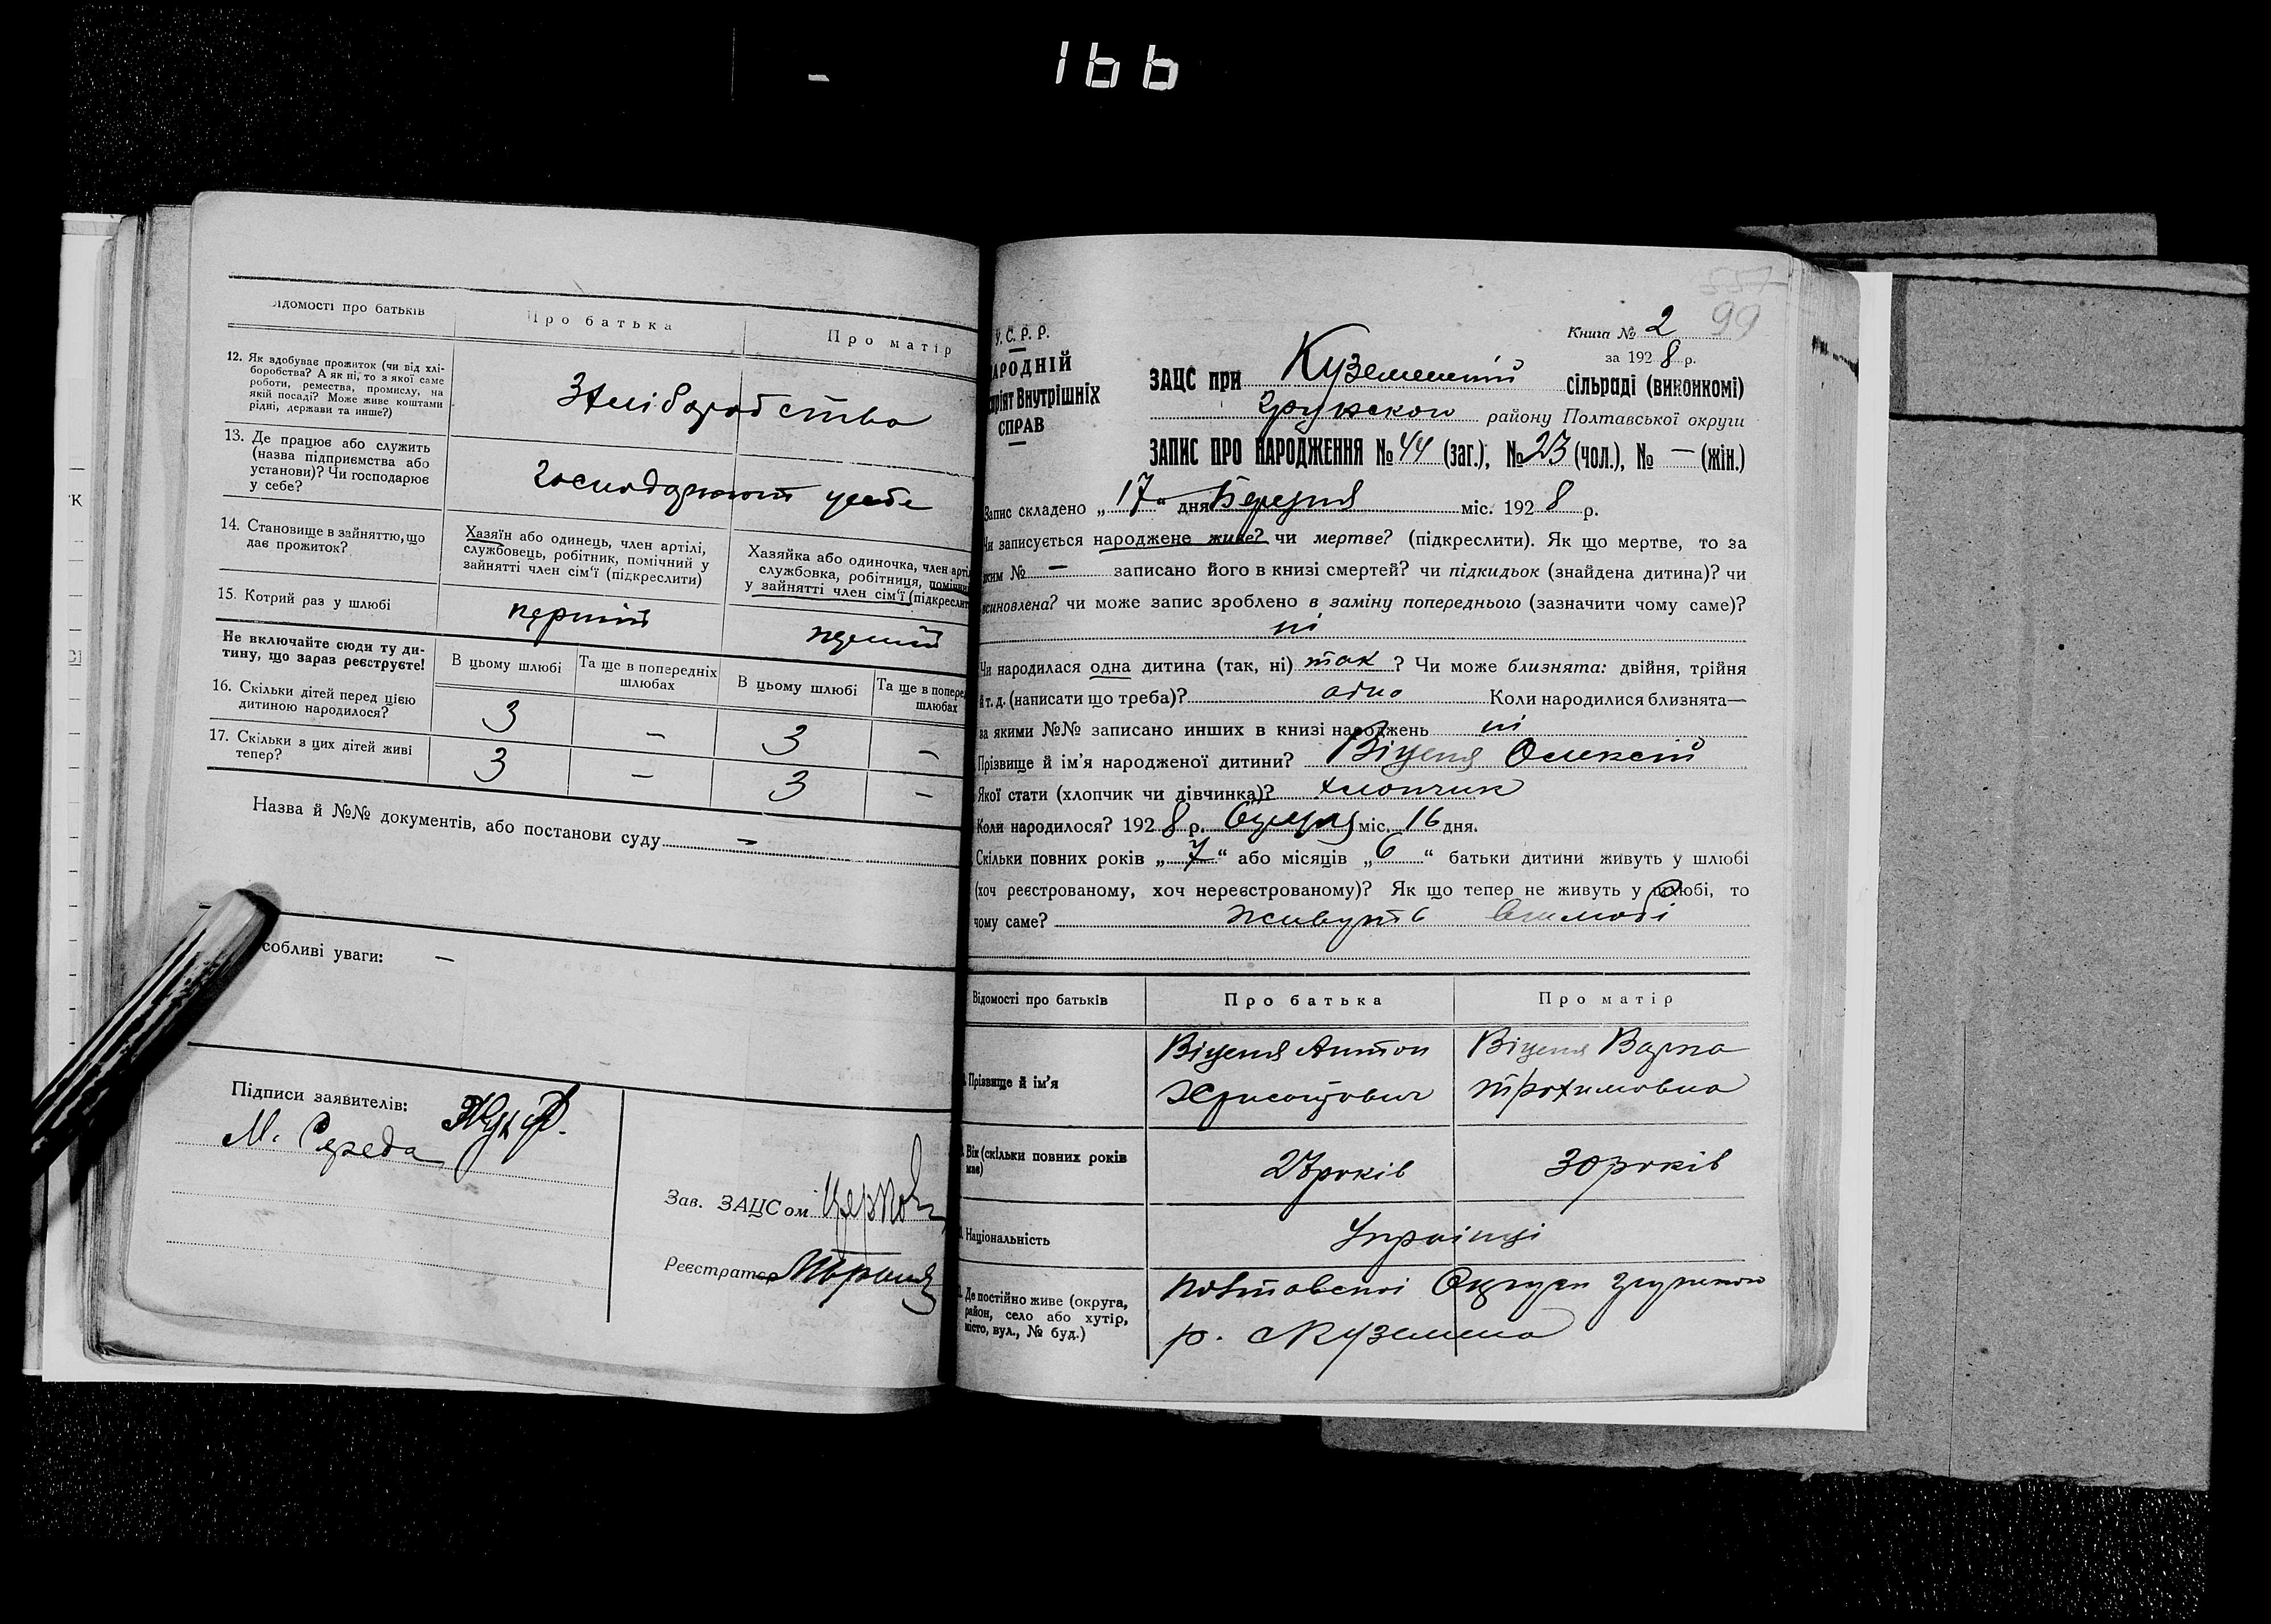 166
Відомості про батьків
Про батька
Про матір
12. Як здобуває прожиток (чи від хлі-
боробства? А як ні, то з якої саме
роботи, ремества, промислу, на
якій посаді? Може живе коштами
рідні, держави та инше?)
З хліборобства
13. Де працює або служить
(назва підприємства або
установи)? Чи господарює
у себе?
14. Становище в зайняттю, що
дає прожиток?
Хазяїн або одинець, член артілі,
службовець, робітник, помічний у
зайнятті член сім'ї (підкреслити)
Хазяйка або одиночка, член арті
службовка, робітниця, помічни
у зайнятті член сім'ї (підкреслит
15. Котрий раз у шлюбі
перший
перший
Не включайте сюди ту ди-
тину, що зараз реєструєте!
В цьому шлюбі
Та ще в попередніх
шлюбах
В цьому шлюбі
Та ще в попере
шлюбах
16. Скільки дітей перед цією
дитиною народилося?
3 – 3 –
17. Скільки з цих дітей живі
тепер?
3 – 3 –
Назва й №№ документів, або постанови суду –
собливі уваги: –
Підписи заявителів:
М. Середа
Зав. ЗАЦСом
Реєстратор
557
99
У.С.Р.Р.
АРОДНІЙ
ріят Внутрішніх
СПРАВ
Книга № 2
за 1928 р.
ЗАЦС при Куземеській сільраді (виконкомі)
району Полтавської округи
ЗАПИС ПРО НАРОДЖЕННЯ № 44 (заг.), № 23 (чол.), № — (жін.)
Запис складено „17“ дня Березня міс. 1928 р.
Чи записується народжене живе? чи мертве? (підкреслити). Як що мертве, то за
яким № — записано його в книзі смертей? чи підкидьок (знайдена дитина)? чи
всиновлена? чи може запис зроблено в заміну попереднього (зазначити чому саме)?
ні
Чи народилася одна дитина (так, ні) так? Чи може близнята: двійня, трійня
й т. д. (написати що треба)? одно Коли народилися близнята—
за якими №№ записано инших в книзі народжень ні
Прізвище й ім'я народженої дитини? Віценя Олексій
Якої стати (хлопчик чи дівчинка)? хлопчик
Коли народилося? 1928 р. березня міс. 16 дня.
Скільки повних років „7“ або місяців „6“ батьки дитини живуть у шлюбі
(хоч реєстрованому, хоч нереєстрованому)? Як що тепер не живуть у шлюбі, то
чому саме? живуть вшлюбі
Відомості про батьків
Про батька
Про матір
Прізвище й ім'я
Віценя Антон
Віценя Варка
трохимовна
Вік (скільки повних років
має)
27 років
30 років
Національність
Українці
Де постійно живе (округа,
район, село або хутір,
місто, вул., № буд.)
Полтавської Округи
р. с Куземена